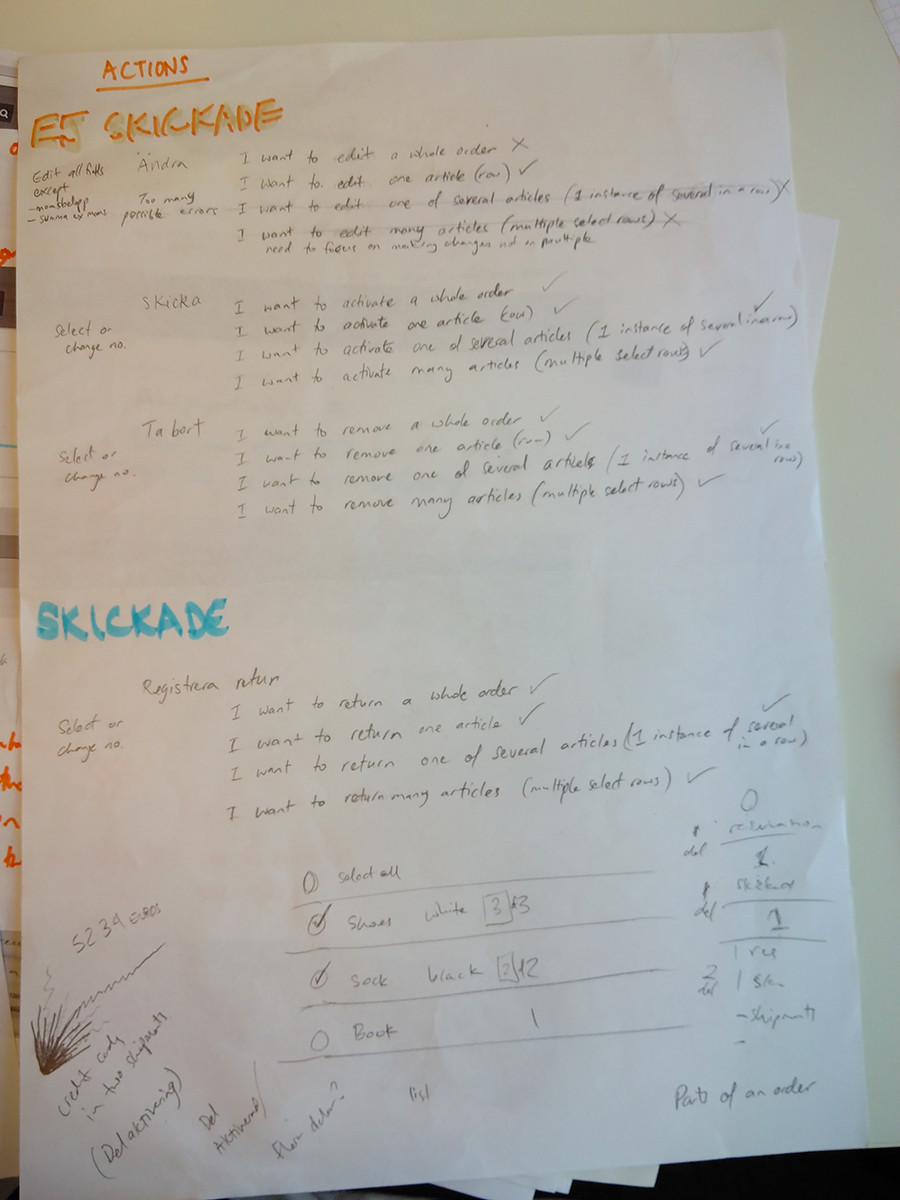 ACTIONS
EJ SKICKADE
Edit all fields
except
- momsbelopp
- summa ex moms
Ändra
Too many
possible errors
I want to edit a whole order X
I want to edit one article (row) ✓
I want to edit one of several articles (1 instance of several in a row) X
I want to edit many articles (multiple select rows) X
need to focus on making changes not on multiple
Skicka
Select or
change no.
I want to activate a whole order ✓
I want to activate one article (row) ✓
I want to activate one of several articles (1 instance of several in a row) ✓
I want to activate many articles (multiple select rows) ✓
Ta bort
Select or
change no.
I want to remove a whole order ✓
I want to remove one article (row) ✓
I want to remove one of several articles (1 instance of several in a row) ✓
I want to remove many articles (multiple select rows) ✓
SKICKADE
Registrera retur
Select or
change no.
I want to return a whole order ✓
I want to return one article ✓
I want to return one of several articles (1 instance of several
in a row) ✓
I want to return many articles (multiple select rows) ✓
Select all
Shoes white 3
Sock black 2
Book 1
0
reservation
del
1
del
1
1 res
2
del
1
- shipments
-
5234 EUROS
Credit cards
in two shipments
(Delaktivering)
Del
list
Parts of an order